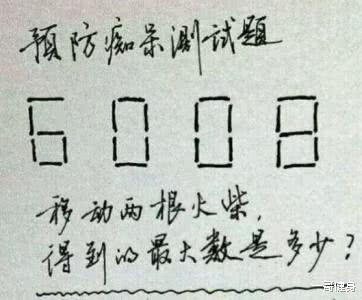 預防痴呆测試題
6 0 0 8
移动两根火柴,
得到的最大数是多少?
奇健身